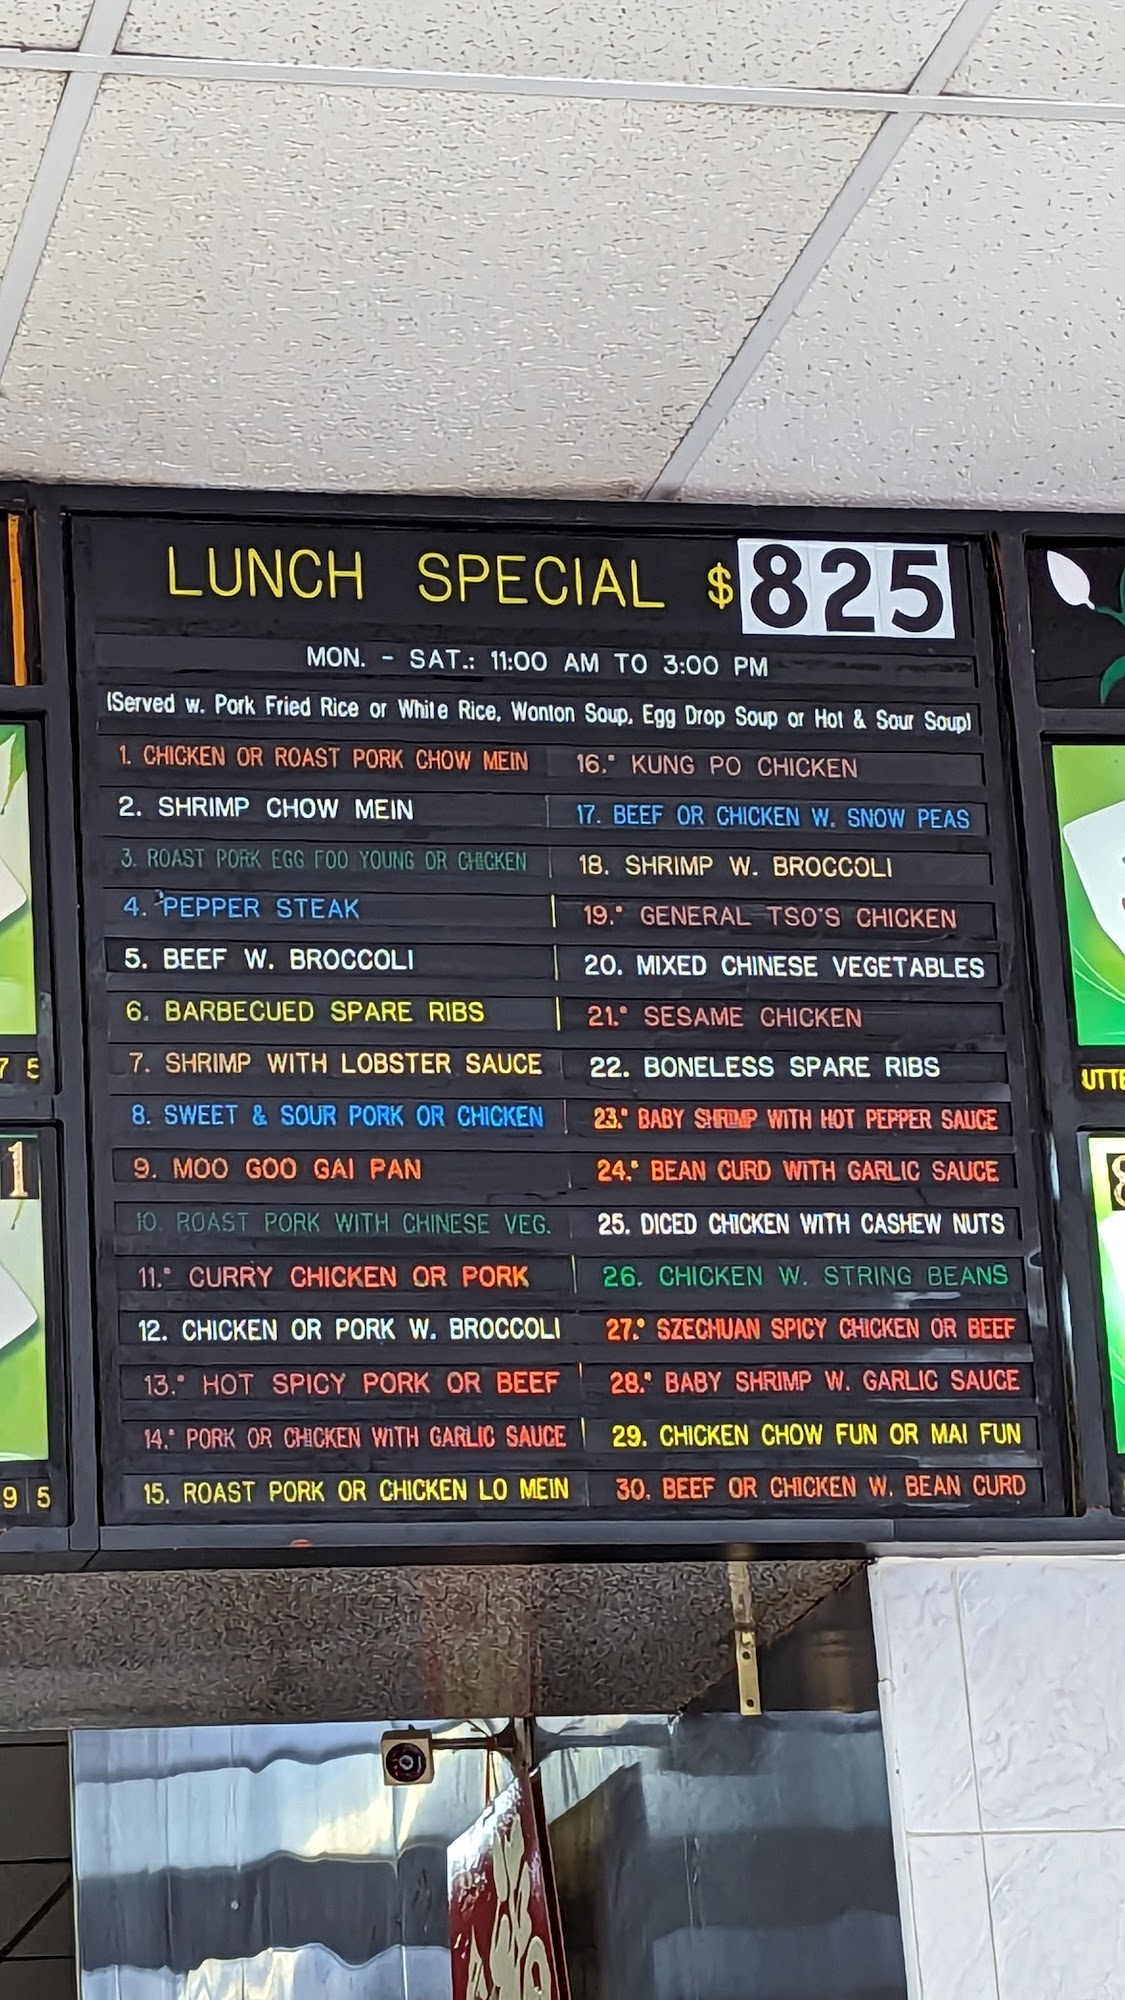 LUNCH SPECIAL $825
MON. - SAT.: 11:00 AM TO 3:00 PM
(Served w. Pork Fried Rice or White Rice, Wonton Soup, Egg Drop Soup or Hot & Sour Soup)
1. CHICKEN OR ROAST PORK CHOW MEIN
2. SHRIMP CHOW MEIN
3. ROAST PORK EGG FOO YOUNG OR CHICKEN
4. PEPPER STEAK
5. BEEF W. BROCCOLI
6. BARBECUED SPARE RIBS
7. SHRIMP WITH LOBSTER SAUCE
8. SWEET & SOUR PORK OR CHICKEN
9. MOO GOO GAI PAN
10. ROAST PORK WITH CHINESE VEG.
11.* CURRY CHICKEN OR PORK
12. CHICKEN OR PORK W. BROCCOLI
13.* HOT SPICY PORK OR BEEF
14.* PORK OR CHICKEN WITH GARLIC SAUCE
15. ROAST PORK OR CHICKEN LO MEIN
16.* KUNG PO CHICKEN
17. BEEF OR CHICKEN W. SNOW PEAS
18. SHRIMP W. BROCCOLI
19.* GENERAL TSO'S CHICKEN
20. MIXED CHINESE VEGETABLES
21.* SESAME CHICKEN
22. BONELESS SPARE RIBS
23.* BABY SHRIMP WITH HOT PEPPER SAUCE
24.* BEAN CURD WITH GARLIC SAUCE
25. DICED CHICKEN WITH CASHEW NUTS
26. CHICKEN W. STRING BEANS
27.* SZECHUAN SPICY CHICKEN OR BEEF
28.* BABY SHRIMP W. GARLIC SAUCE
29. CHICKEN CHOW FUN OR MAI FUN
30. BEEF OR CHICKEN W. BEAN CURD
7 5
1
9 5